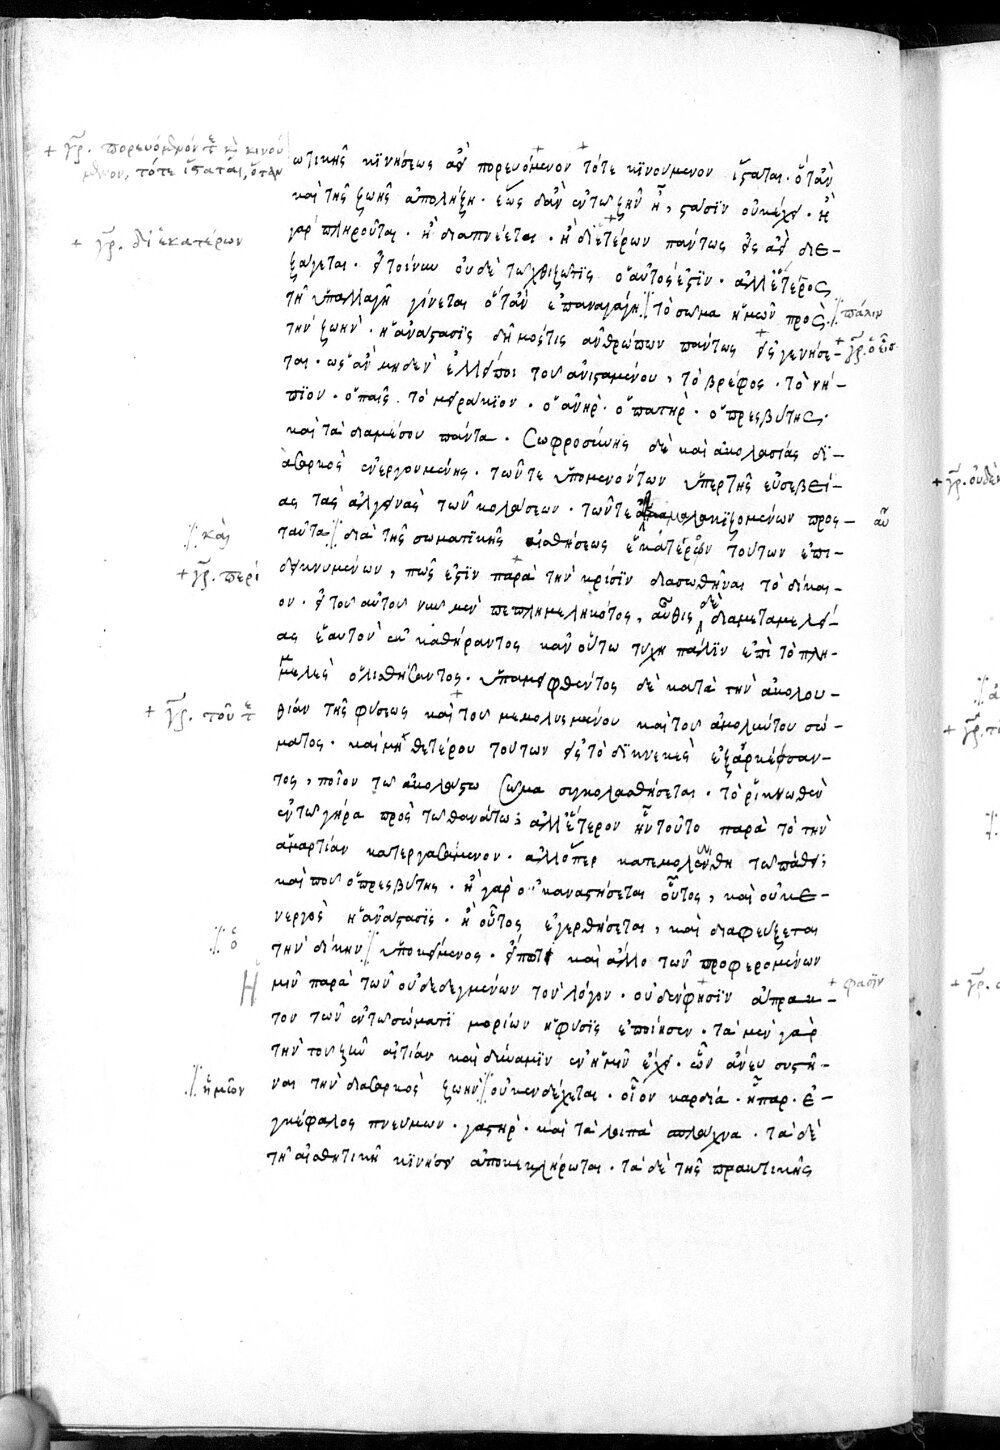 + γρ. πορευόμενόν τε καὶ κινού
μενον, τότε ἵσταται, ὅταν
ωτικῆς κϊνήσεως ἀεὶ πορευόμενον τότε κϊνούμενον ἵσταται · ὅτἂν
καὶ τῆς ζωῆς ἀπολήξῃ · ἕως δἂν ἐν τῶ ζῆν ᾖ, στάσϊν οὐκ ἔχει · ἢ
+ γρ. δι' ἑκατέρων
γὰρ πληροῦται · ἢ διαπνέεται · ἢ δι ἑτέρων πάντως εἰς ἀεὶ διε-
ξάγεται · εἰ τοίνυν οὐδὲ τῶ χθιζῶ τὶς ὁ αὐτός ἐστϊν · ἀλλ' ἕτερος
τῇ ὑπαλλαγῇ γίνεται ὅτἂν ἐπαναγάγῃ τὸ σῶμα ἡμῶν πρὸς
πάλιν
τὴν ζωὴν · ἡ ἀνάστασϊς δῆμός τις ἀνθρώπων πάντως εἷς γενήσε-
+ γρ. ὁ εἷς
ται · ὡς ἂν μηδὲν ἐλλείποι τοῦ ἀνισταμένου, τὸ βρέφος · τὸ νή-
πϊον · ὁ παῖς · τὸ μειράκϊον · ὁ ἀνὴρ · ὁ πατὴρ · ὁ πρεσβύτης ·
καὶ τὰ διαμέσου πάντα · Σωφροσύνης δὲ καὶ ἀκολασίας δϊ-
ὰ σαρκὸς ἐνεργουμένης · τῶν τε ὑπομενόντων ὑπὲρ τῆς εὐσεβεί-
ας τὰς ἀλγεινὰς τῶν κολάσεων · τῶν τε μαλακιζομένων προς-
αὖ
καὶ
ταῦτα διὰ τῆς σωματϊκῆς αἰσθήσεως ἑκατέρων τούτων ἐπι-
+ γρ. περὶ
δεικνυμένων, πῶς ἐστϊν παρὰ τὴν κρίσϊν διασωθῆναι τὸ δίκαι-
ον · εἰ τοῦ αὐτοῦ νῦν μὲν πεπλημεληκότος, αὖθις δὲ διαμεταμελεί-
ας ἑαυτὸν ἐκκαθήραντος κἂν οὕτω τύχῃ πάλϊν ἐπὶ τὸ πλη-
μμελὲς ὀλισθήσαντος · ὑπαμειφθέντος δὲ κατὰ τὴν ἀκολου-
+ γρ. τοῦ τε
θίαν τῆς φύσεως καὶ τοῦ μεμολυσμένου καὶ τοῦ ἀμολύντου σώ-
ματος · καὶ μηθετέρου τούτων εἰς τὸ διηνεκὲς ἐξαρκέσαν-
τος, ποῖον τῶ ἀκολάστω σῶμα συγκολασθήσεται · τὸ ῥϊκνωθὲν
ἐν τῶ γήρα πρὸς τῶ θανάτω; ἀλλ' ἕτερον ἦν τοῦτο παρὰ τὸ τὴν
ἁμαρτίαν κατεργασάμενον · ἀλλ' ὅπερ κατεμολύνθη τῶ πάθει;
καὶ ποῦ ὁ πρεσβύτης · ἢ γὰρ οὐκ ἀναστήσεται οὗτος, καὶ οὐκ ἐ-
νεργὸς ἡ ἀνάστασϊς · ἢ οὗτος ἐγερθήσεται, καὶ διαφεύξεται
ὁ
τὴν δίκην ὑποκείμενος · εἴπω τι καὶ ἄλλο τῶν προφερομένων
ἡμῖν παρὰ τῶν οὐ δεδεγμένων τὸν λόγον · οὐδὲν φησϊν ἄπρακ-
+ φασϊν
τον τῶν ἐν τῶ σώματϊ μορίων ἡ φύσϊς ἐποίησεν · τὰ μὲν γὰρ
τὴν τοῦ ζῆν αἰτίαν καὶ δύναμϊν ἐν ἡμῖν ἔχει · ὧν ἄνευ συστῆ-
ἡμῶν
ναι τὴν διὰ σαρκὸς ζωὴν οὐκ ἐνδέχεται · οἷον καρδία · ἧπαρ · ἐ-
γκέφαλος πνεύμων · γαστὴρ · καὶ τὰ λοιπὰ σπλάγχνα · τὰ δὲ
τῇ αἰσθητικῇ κϊνήσει ἀποκεκλήρωται · τὰ δὲ τῆς πρακτικῆς
+ γρ. οὐδὲν